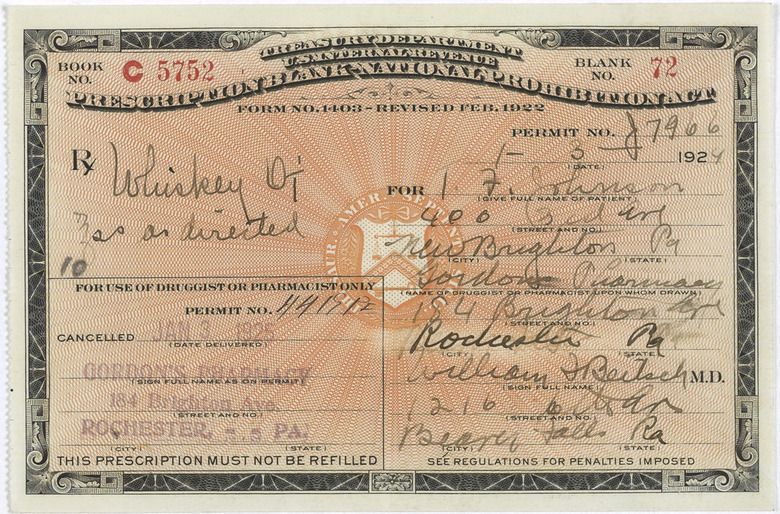 TREASURY DEPARTMENT
U.S. INTERNAL REVENUE
BOOK NO. C 5752
BLANK NO. 72
PRESCRIPTION BLANK-NATIONAL PROHIBITION ACT
FORM NO. 1403-REVISED FEB. 1922
PERMIT NO. J7966
1 - 3 1924
(DATE)
Rx Whiskey Oi
FOR I. F. Johnson
(GIVE FULL NAME OF PATIENT)
ss as directed
400 3rd Ave
(STREET AND NO.)
New Brighton Pa
(CITY) (STATE)
10
Gordons Pharmacy
(NAME OF DRUGGIST OR PHARMACIST UPON WHOM DRAWN)
184 Brighton Ave
(STREET AND NO.)
Rochester Pa
(CITY) (STATE)
William J Reitsch M.D.
(SIGN FULL NAME)
1216 Ave
(STREET AND NO.)
Beaver Falls Pa
(CITY) (STATE)
FOR USE OF DRUGGIST OR PHARMACIST ONLY
PERMIT NO.
CANCELLED JAN 3
(DATE DELIVERED)
GORDON'S PHARMACY
(SIGN FULL NAME AS ON PERMIT)
184 Brighton Ave.
(STREET AND NO.)
ROCHESTER, PA.
(CITY) (STATE)
THIS PRESCRIPTION MUST NOT BE REFILLED
SEE REGULATIONS FOR PENALTIES IMPOSED